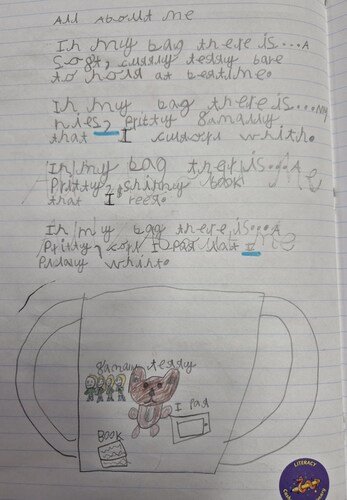 All About Me
In my bag there is...A
soft, cudly teddy bare
to hold at bedtime.
In my bag there is...My
nies, pritty famally
that I cudopt whith.
In my bag ther is...A
Pritty, shiny book
that I reed.
In my bag there is...A
Pritty, I Pad that I
Pulay whith.
famaly teddy
I Pad
BOOK
LITERACY